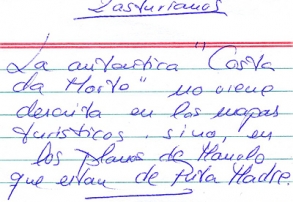 Lasturianos
La autentica "Costa
da Morto" no viene
descrita en los mapas
turisticos, sino, en
los planos de Manolo
que estan de Puta Madre.